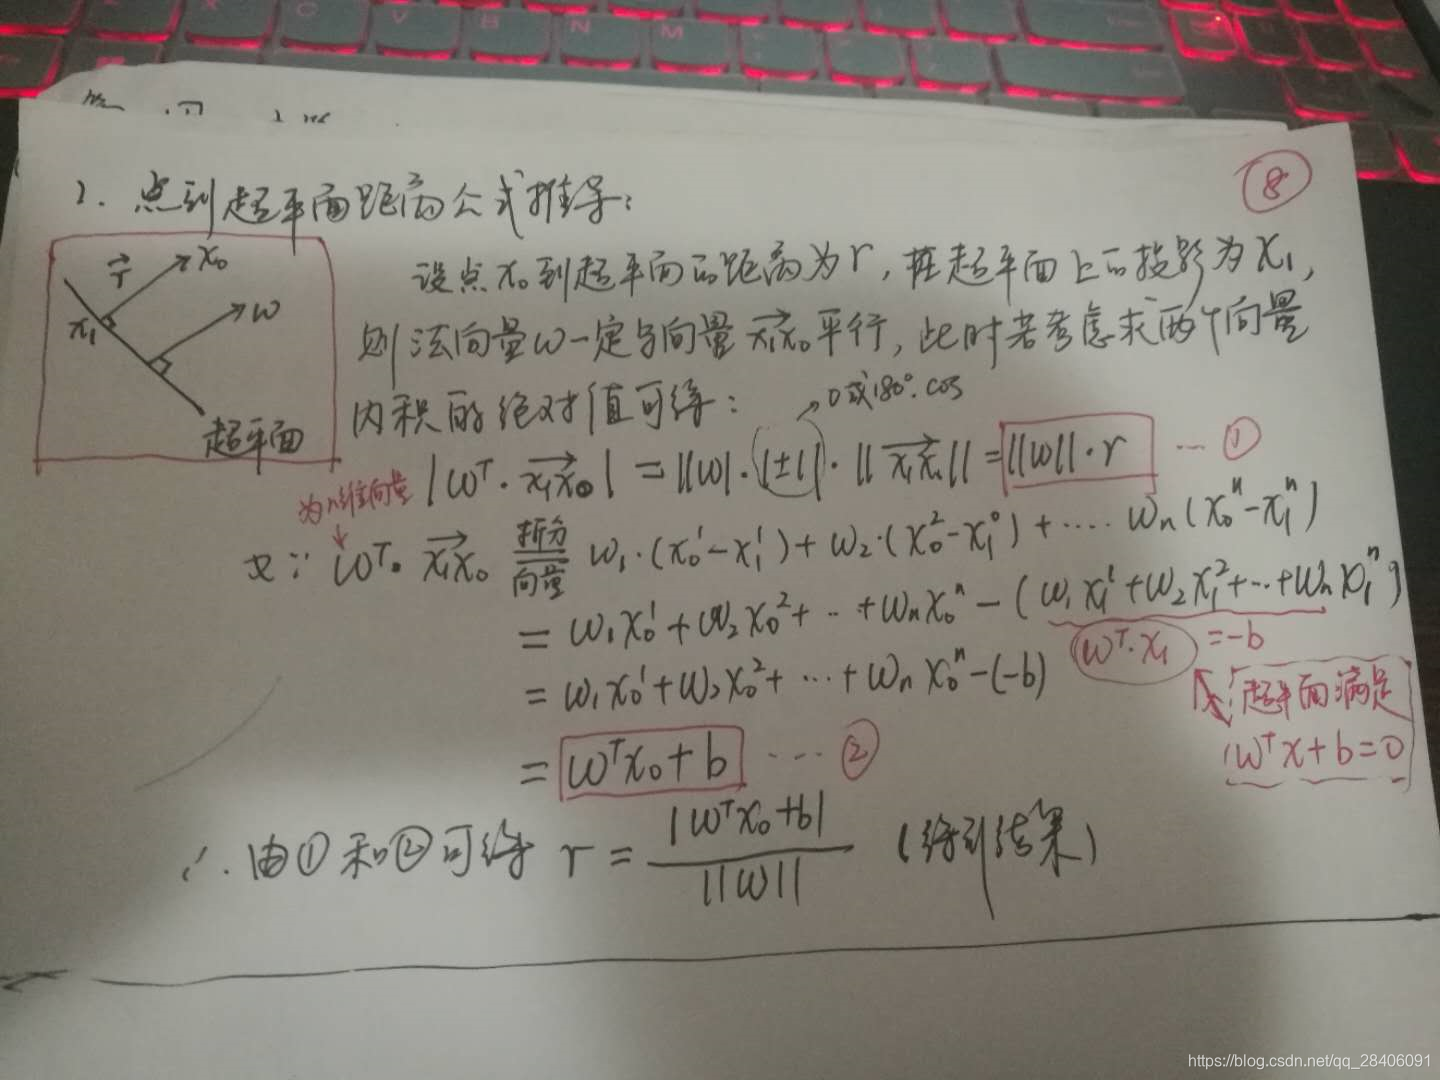 ⑧
1. 点到超平面距离公式推导:
r⃗ x₀
w
x₁
超平面
设点x₀到超平面的距离为r,在超平面上的投影为x₁,
则法向量w一定与向量x₁x₀平行,此时若考虑求两个向量
内积的绝对值可得: 0或180°.cos
|wᵀ·x₁x₀| = ||w||·|±1|·||x₁x₀|| = ||w||·r ... ①
为n维向量
又∵ wᵀ·x₁x₀ 拆分向量 = w₁·(x₀¹-x₁¹)+w₂·(x₀²-x₁⁰)+....wₙ(x₀ⁿ-x₁ⁿ)
= w₁x₀¹+w₂x₀²+...+wₙx₀ⁿ-(w₁x₁¹+w₂x₁²+...+wₙx₁ⁿ)
wᵀ·x₁ =-b
= w₁x₀¹+w₂x₀²+...+wₙx₀ⁿ-(-b)
超平面满足
wᵀx+b=0
= wᵀx₀+b .... ②
∴由①和②可得 r = |wᵀx₀+b| / ||w|| (得到结果)
https://blog.csdn.net/qq_28406091